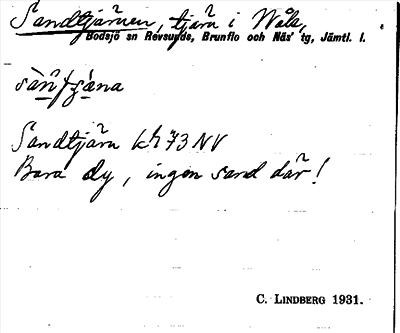 Sandtjärnen, tjärn i Våle,
Bodsjö sn Revsunds, Brunflo och Näs' tg, Jämtl. l.
Sandtjärn kh 73 NV
Bara dy, ingen sand där!
C. LINDBERG 1931.